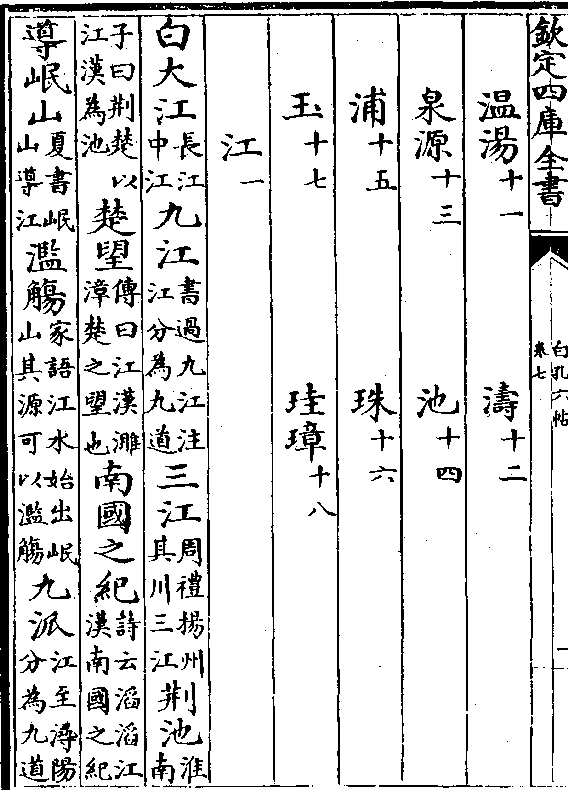 欽定四庫全書
白孔六帖
卷七
一
温湯十一 濤十二
泉源十三 池十四
浦十五 珠十六
玉十七 珪璋十八
江一
白大江長江中江九江書過九江注江分為九道三江周禮揚州其川三江荆池淮南
子曰荆楚以江漢為池楚望傳曰江漢濉漳楚之望也南國之紀詩云滔滔江漢南國之紀
導岷山夏書岷山導江濫觴家語江水始出岷山其源可以濫觴九派江至潯陽分為九道